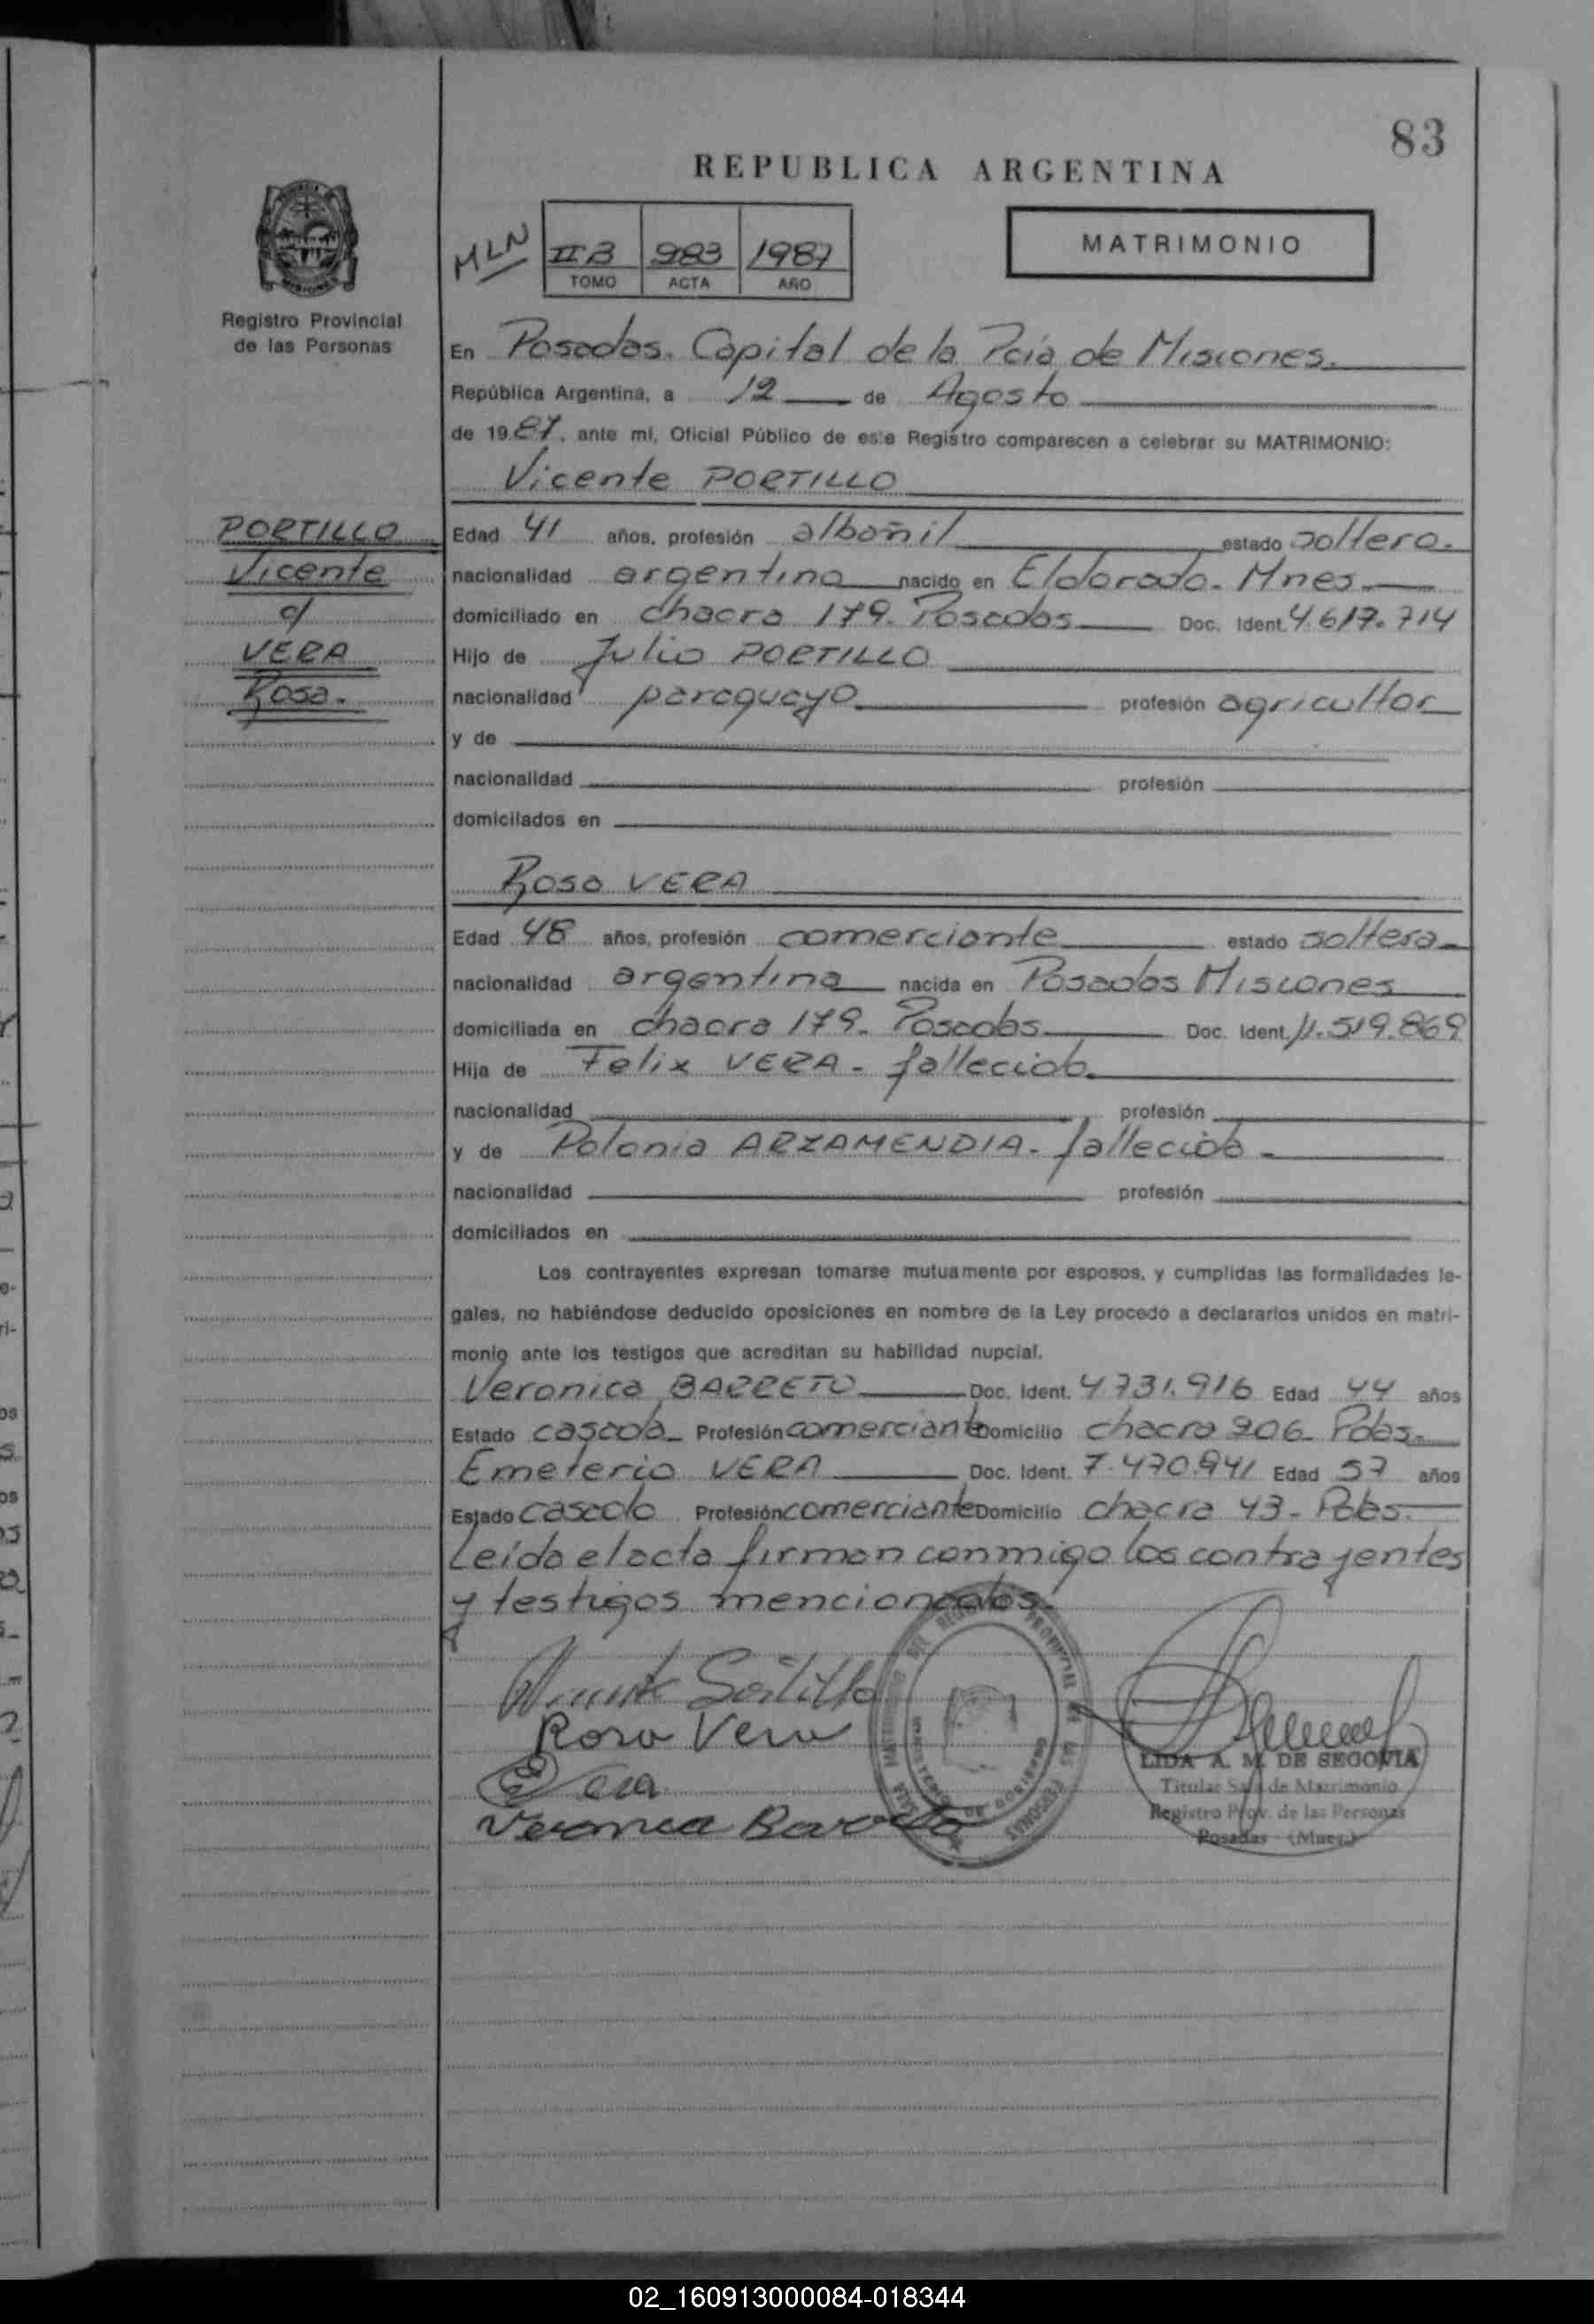 83
REPUBLICA ARGENTINA
MLN
II B 983 1987
TOMO ACTA AÑO
MATRIMONIO
Registro Provincial
de las Personas
En Posadas. Capital de la Pcia de Misiones.
República Argentina, a 12 de Agosto
de 1987, ante mí, Oficial Público de este Registro comparecen a celebrar su MATRIMONIO:
Vicente PORTILLO
PORTILLO
Vicente
c/
VERA
Rosa.
Edad 41 años, profesión albañil estado soltero.
nacionalidad argentino nacido en Eldorado. Mnes.
domiciliado en chacra 179. Posadas Doc. Ident. 4.617.714
Hijo de Julio PORTILLO
nacionalidad paraguayo profesión agricultor
y de
nacionalidad profesión
domicilados en
Rosa VERA
Edad 48 años, profesión comerciante estado soltera
nacionalidad argentina nacida en Posadas Misiones
domiciliada en chacra 179. Posadas Doc. Ident. 11.519.869
Hija de Felix VERA - fallecido.
nacionalidad profesión
y de Polonia ARZAMENDIA - fallecida
nacionalidad profesión
domiciliados en
Los contrayentes expresan tomarse mutuamente por esposos, y cumplidas las formalidades le-
gales, no habiéndose deducido oposiciones en nombre de la Ley procedo a declararlos unidos en matri-
monio ante los testigos que acreditan su habilidad nupcial.
Veronica BARRETO Doc. Ident. 4.731.916 Edad 44 años
Estado casada Profesión comerciante Domicilio chacra 206 Pdas.
Emeterio VERA Doc. Ident. 7.470.941 Edad 57 años
Estado casado Profesión comerciante Domicilio chacra 43 - Pdas.
Leída el acta firman conmigo los contrayentes
y testigos mencionados.
Vicente Portillo
Rosa Vera
E Vera
Veronica Barreto
LIDA A. M. DE SEGOVIA
Titular Sala de Matrimonio
Registro Prov. de las Personas
Posadas (Mnes.)
02_160913000084-018344